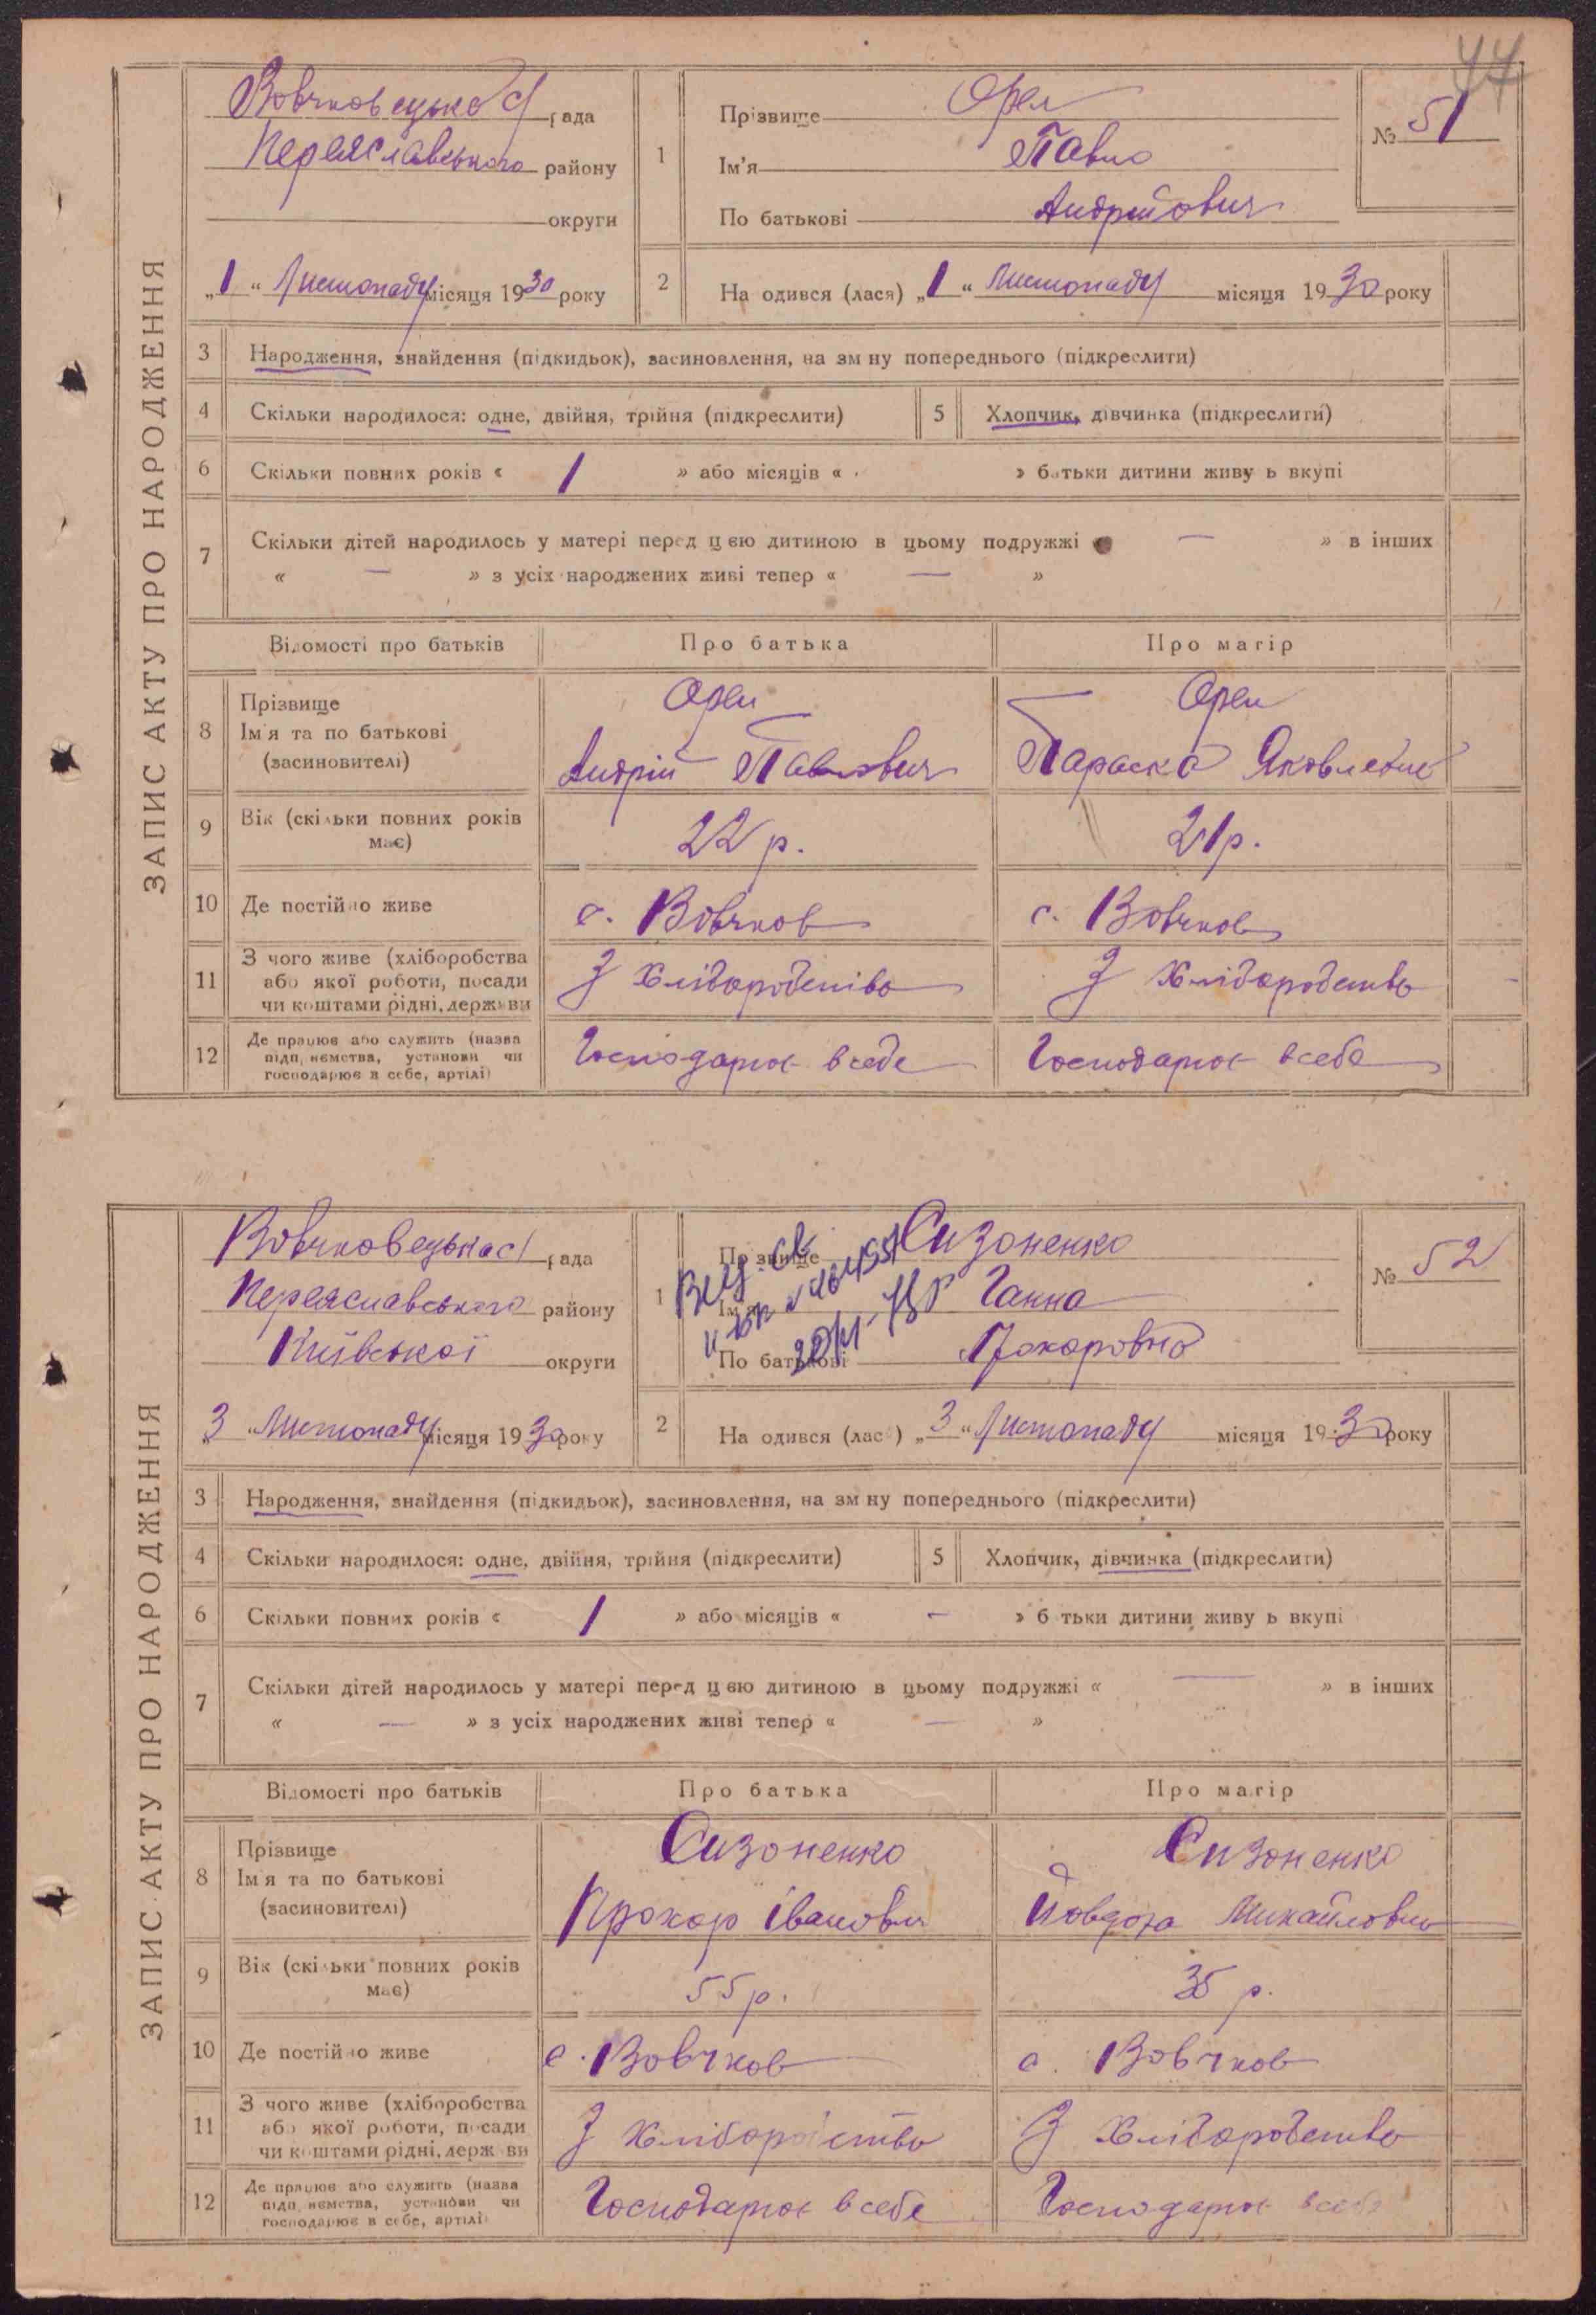 44
ЗАПИС АКТУ ПРО НАРОДЖЕННЯ
Вовчковецька рада
Переяславського району
округи
„1“ Листопаду місяця 1930 року
1
Прізвище Орел
Ім'я Павло
По батькові Андрійович
№ 51
2
На одився (лася) „1“ Листопаду місяця 1930 року
3 Народження, знайдення (підкидьок), засиновлення, на зм ну попереднього (підкреслити)
4 Скільки народилося: одне, двійня, трійня (підкреслити) 5 Хлопчик, дівчинка (підкреслити)
6 Скільки повних років « 1 » або місяців « » б тьки дитини живу ь вкупі
7 Скільки дітей народилось у матері перед ц ею дитиною в цьому подружжі — » в інших
« — » з усіх народжених живі тепер « — »
Відомості про батьків Про батька Про матір
8 Прізвище Орел Орел
Ім'я та по батькові Андрій Павлович Параска Яковлевна
(засиновителі)
9 Вік (скільки повних років має) 22 р. 21 р.
10 Де постійно живе с. Вовчков с. Вовчков
11 З чого живе (хліборобства
або якої роботи, посади З хліборобство З хліборобство
чи коштами рідні, держави
12 Де працює або служить (назва
підп иємства, установи чи Господарює в себе Господарює в себе
господарює в себе, артілі)
ЗАПИС АКТУ ПРО НАРОДЖЕННЯ
Вовчковецька рада
Переяславського району
Київської округи
„3“ Листопаду місяця 1930 року
1
Прізвище Сизоненко
Ім'я Ганна
По батькові Прокоровна
№ 52
2
На одився (лас ) „3“ Листопаду місяця 1930 року
3 Народження, знайдення (підкидьок), засиновлення, на зм ну попереднього (підкреслити)
4 Скільки народилося: одне, двійня, трійня (підкреслити) 5 Хлопчик, дівчинка (підкреслити)
6 Скільки повних років « 1 » або місяців « — » б тьки дитини живу ь вкупі
7 Скільки дітей народилось у матері перед ц ею дитиною в цьому подружжі « — » в інших
« — » з усіх народжених живі тепер « — »
Відомості про батьків Про батька Про матір
8 Прізвище Сизоненко Сизоненко
Ім'я та по батькові Прокор Іванович Йовдоха Михайловна
(засиновителі)
9 Вік (скільки повних років має) 55 р. 35 р.
10 Де постійно живе с. Вовчков с. Вовчков
11 З чого живе (хліборобства
або якої роботи, посади З хліборобство З хліборобство
чи коштами рідні, держ ви
12 Де працює або служить (назва
підп иємства, установи чи Господарює в себе Господарює в себе
господарює в себе, артілі)